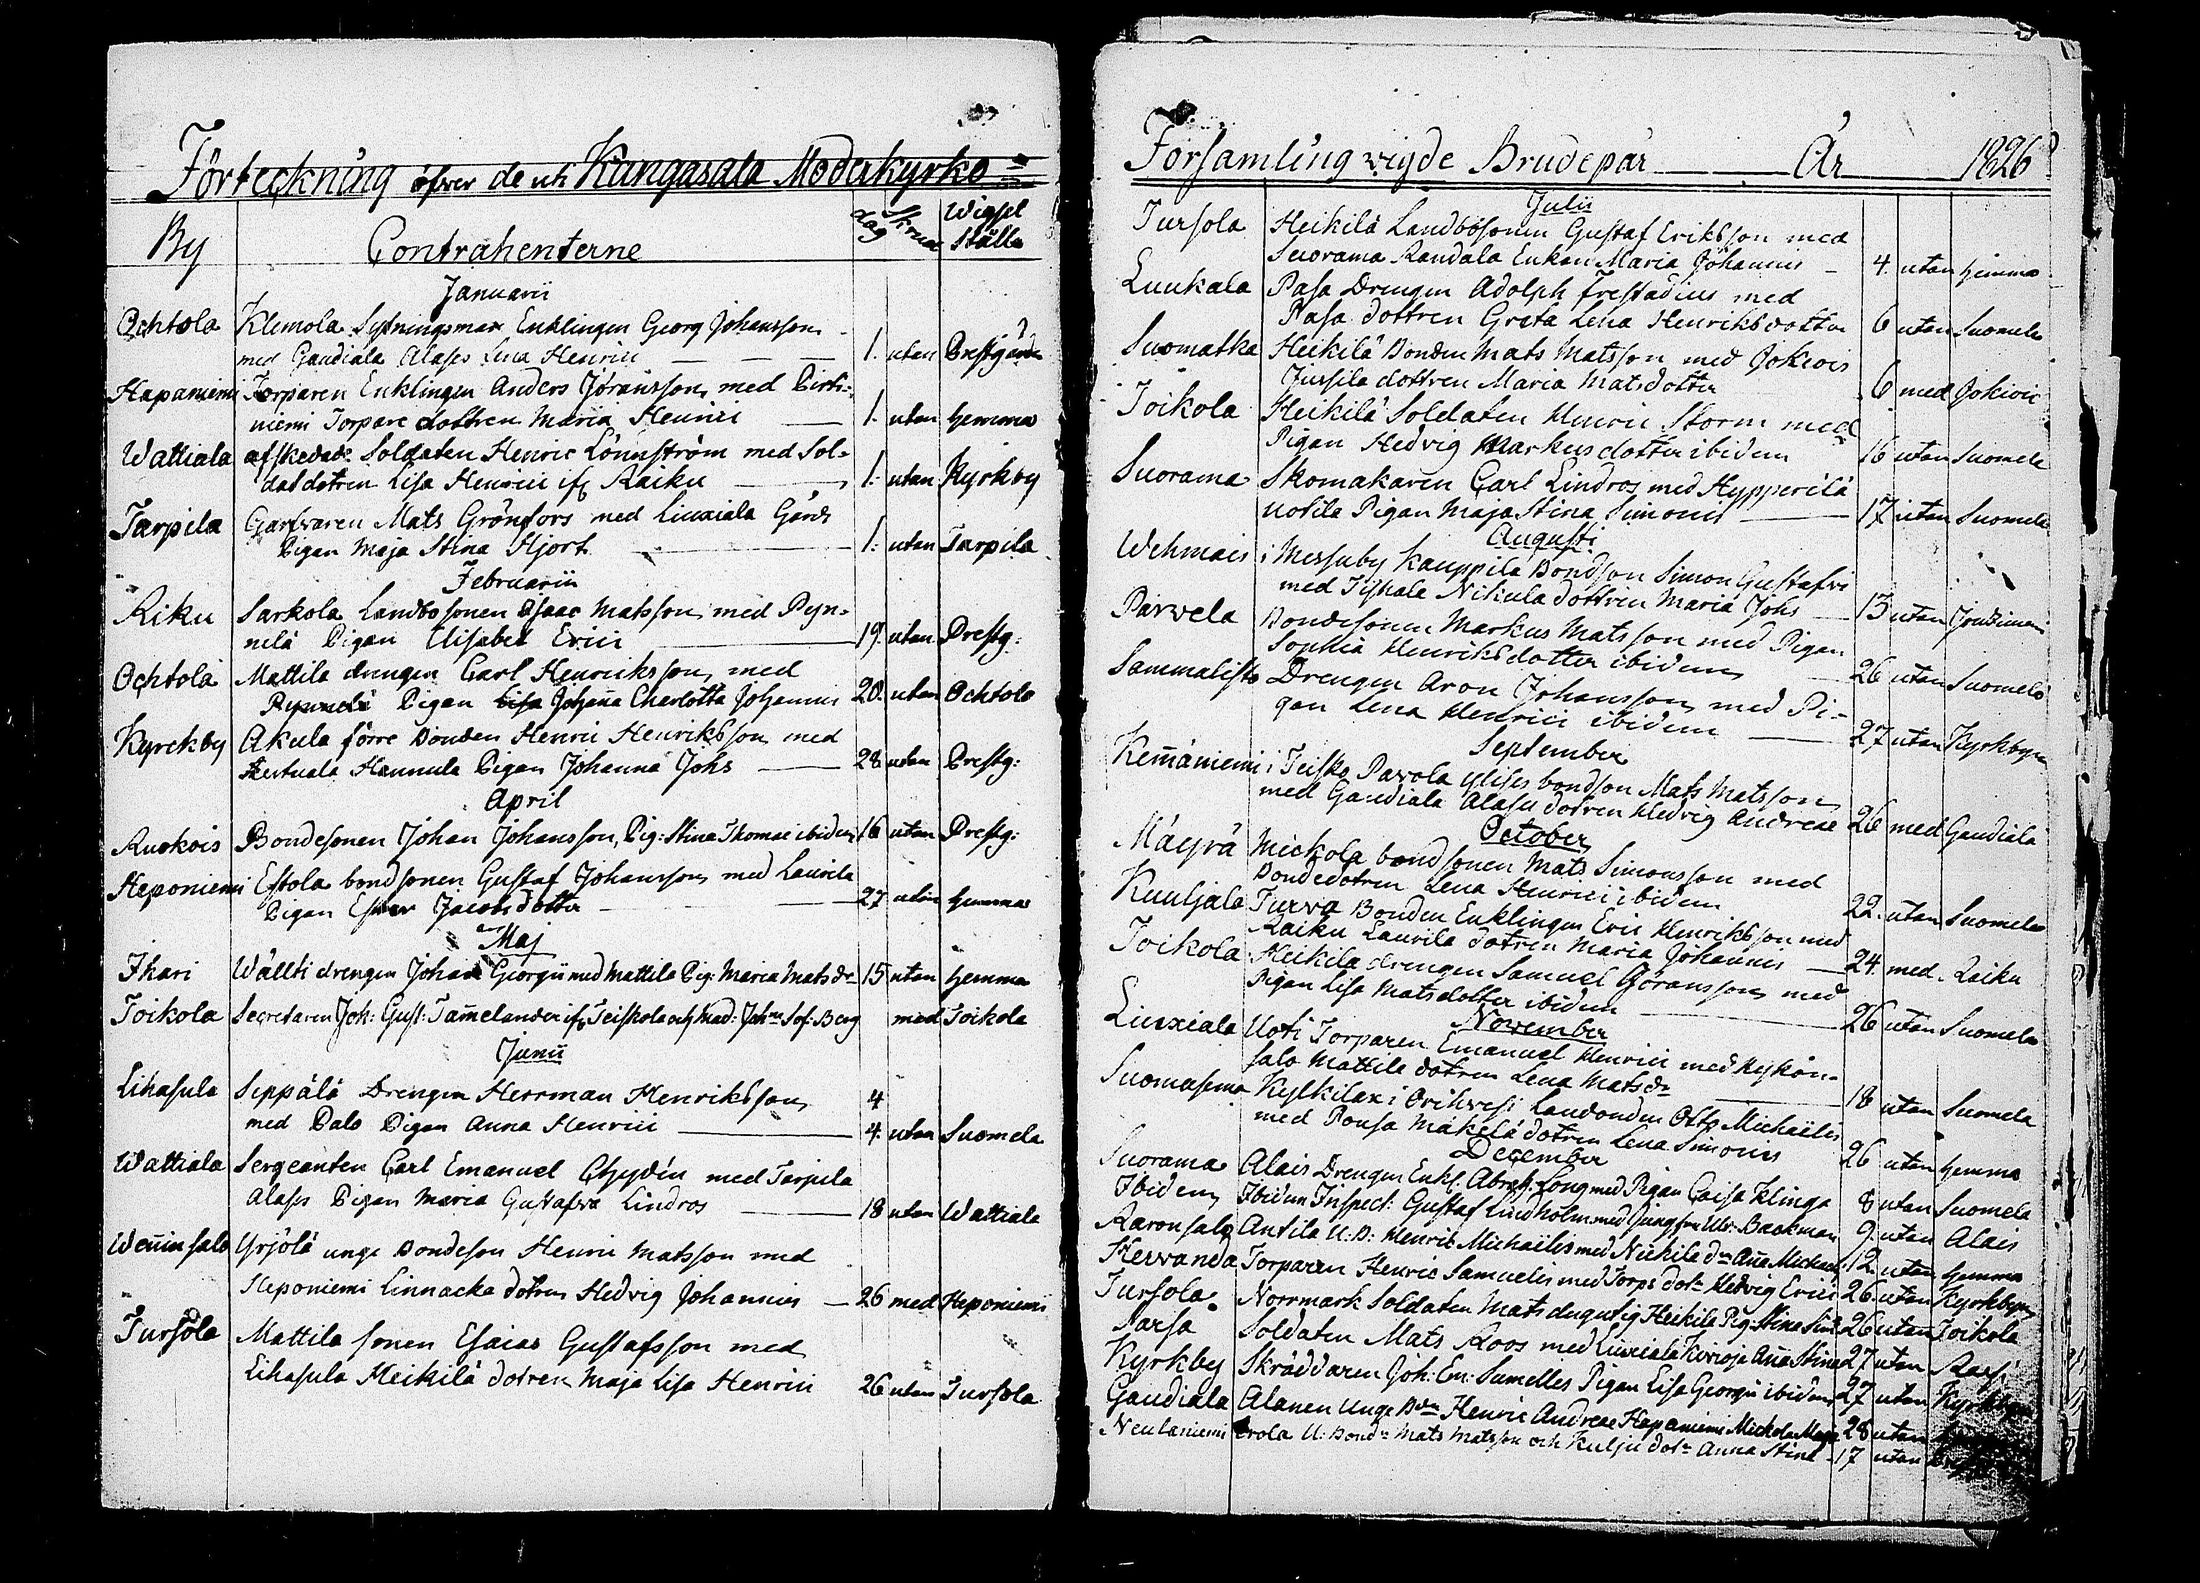 Förteckning öfver de uti Kangasala Moderkyrko
By Contrahenterne dag Skrud Wigsel ställe
Januarii
Ochtola Klemola Sytningsman Enklingen Georg Johansson
med Gaudiala Alases Lena Henrici 1. utan Prestgården
Hapaniemi Torparen Enklingen Anders Jöransson med
niemi Torpare dottren Maria Henrici 1. utan hemma
Wattiala afskedade Soldaten Henric Lönnström med Sol-
dat dotren Lisa Henrici ifr Raiku 1. utan Kyrkby
Tarpila Garfvaren Mats Grönfors med Liuxiala Gårds
Pigan Maja Stina Hjort 1. utan Tarpila
Februarii
Riku Sarkola Landbosonen Isaac Matsson med Pyn-
nilä Pigan Elisabet Erici 19. utan Prestg:
Ochtola Mattila drengen Carl Henriksson med
Pigan Johanna Charlotta Johannis 20. utan Ochtola
Kyrckby Akula förre Bonden Henric Henriksson med
Hannula Pigan Johanna Johs 28 utan Prestg:
April
Ruokois Bondesonen Johan Johansson, Pig: Stina Thomae ibidem 16 utan Prestg:
Haponiemi Estola bondsonen Gustaf Johansson med Laurila
Pigan Ester Jacobsdotter 27 utan hemma
Maj
Ihari Wällti drengen Johan Georgii med Mattila Pig: Maria Mats dr 15 utan hemma
Toikola Secretaren Joh: Gust: Tam̄elander ifr Teiskola och Mad: Joh:na Sof: Berg med Toikola
Junii
Lihasula Seppälä Drengen Herrman Henriksson 4
med Palo Pigan Anna Henrici 4. utan Suomela
Wattiala Sergeanten Carl Emanuel Chydén med Tarpila
Alases Pigan Maria Gustafva Lindros 18 utan Wattiala
Wen̄insalo Yrjölä unge Bondeson Henric Matsson med
Heponiemi Linnacka dotren Hedvig Johannis 26 med Heponiemi
Tursola Mattila sonen Esaias Gustafsson med
Lihasula Heikilä dotren Maja Lisa Henrici 26 utan Tursola
Församling vigde Brudepar År 1826
Julii
Tursola Heikilä Landbosonen Gustaf Eriksson med
Suorama Randala Enkan Maria Johannis 4. utan hemma
Luukala Pasa Drengen Adolph Frestadius med
Pasa dottren Greta Lena Henriksdotter 6 utan Suomela
Suomatka Heikilä Bonden Mats Matsson med Jokiois
Jussila dottren Maria Matsdotter 6 med Jokiois
Toikola Heikilä Soldaten Henric Storm med
Pigan Hedvig Markus dotter ibidem 16 utan Suomela
Suorama Skomakaren Carl Lindros med Hypperilä
Uotila Pigan Maja Stina Simonis 17 utan Suomela
Augusti
Wehmais i Messuby Kauppila Bondson Simon Gustafvi
med Tiihala Nikula dottren Maria Johs 13 utan
Parvela Bondesonen Markus Matsson med Pigan
Sophia Henriksdotter ibidem 26 utan Suomela
Sammalisto Drengen Aron Johansson med Pi-
gan Lena Henrici ibidem 27 utan Kyrkbyn
September
Kem̄äniemi i Teisko Pavola ylises bondson Mats Matsson
med Gaudiala Alases dotren Hedvig Andreae 26 med Gaudiala
October
Mäyrä Mickola bondsonen Mats Simonsson med
Bondedotren Lena Henrici ibidem 22. utan Suomela
Kuuljala Turva Bonden Enklingen Eric Henriksson med
Raiku Laurila dotren Maria Johannis 24. med Raiku
Toikola Heikilä drengen Samuel Göransson med
Pigan Lisa Matsdotter ibidem 26 utan Suomela
November
Liuxiala Uoti Torparen Emanuel Henrici med Kykön-
salo Mattila dotren Lena Matsdr 18 utan Suomela
Suomasema Kylkilax i Orihvesi Landbonden Otto Michaëlis
med Ponsa Mäkelä dotren Lena Simonis 26 utan hemma
December
Suorama Alais Drengen Enkl: Abrah: Long med Pigan Caisa Klinga 8 utan Suomela
Ibidem Ibidem Inspect: Gustaf Lindholm med Jungfru Ulr: Backman 9 utan Alais
Aaronsalo Antila U: B: Henric Michaëlis med Nickila dn An̄a Michaels 12. utan hemma
Hervanda Torparen Henric Samuelis med Torps dotn Hedvig Erici 26. utan Kyrkbyn
Tursola Norrmark Soldaten Mats Heikila Pig: Stina Sim: 26 utan Toikola
Soldaten Mats Roos med Liuxiala An̄a Stina 27 utan
Kyrkby Skräddaren Joh: Em: Sumelles Pigan Lisa Georgii ibidem 27 utan Kyrkbyn
Gaudiala Alanen Unge Bdn Henric Andreae Hapaniemi Mickola Maja 28 utan
Neulaniemi Erola U: Bondn Mats Matsson och Kulju dotn Anna Stina 17 utan